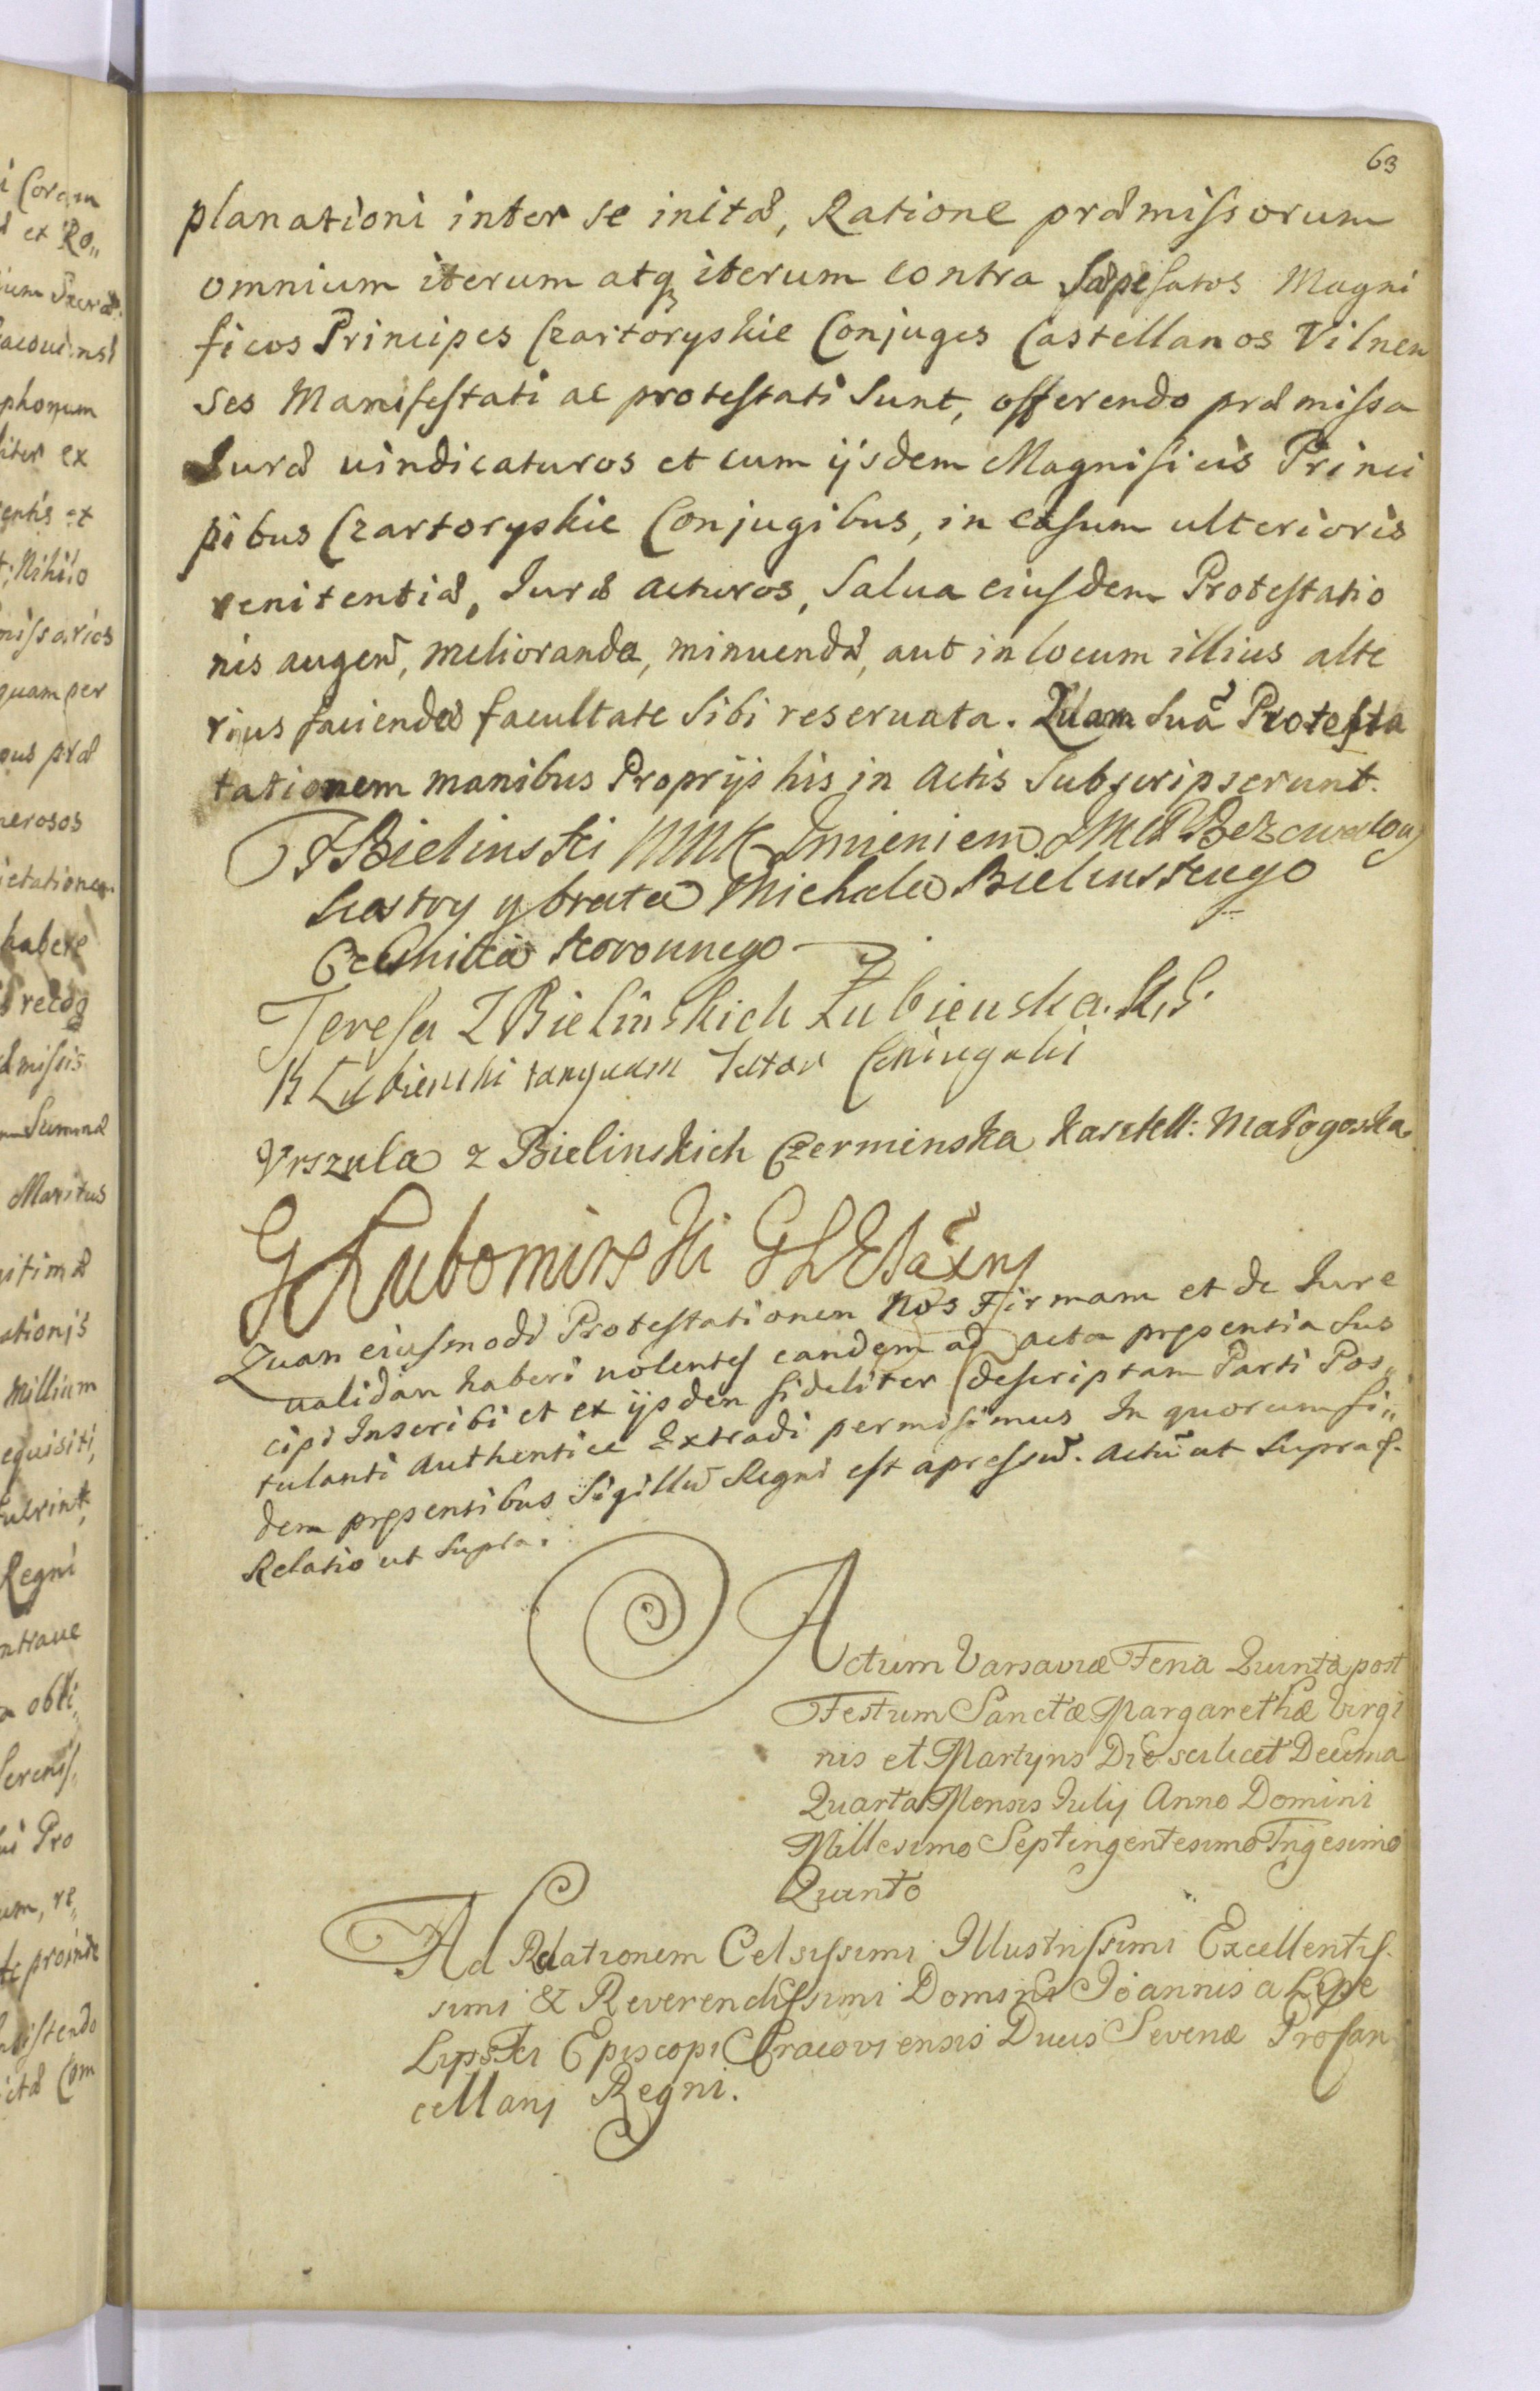 63
planationi inter se initæ, Ratione præmissorum
omnium iterum atq iterum contra sæpefatos Magni
ficos Principes Czartoryskie Conjuges Castellanos Vilnen
ses Manifestati ac protestati sunt, offerendo præmissa
Jure uindicaturos et cum ijsdem Magnificis Princi
pibus Czartoryskie Conjugibus, in casum ulterioris
renitentiæ, Jure acturos, Salua eiusdem Protestatio
nis augen, melioranda, minuendæ, aut in locum illius alte
rius faciendæ facultate sibi reseruata. Quam Suã Protesta
tationem manibus Proprijs his in Actis Subscripserunt.
F Bielinski MMK Imieniem
Siostry y brata Michała Bielinskiego
Czesnika Koronnego
Teresa Z Bielinskich Łubienska. K.S.
K Łubienski tanquam Tutor Coniugalis
Vrszula z Bielinskich Czerminska Kasztell: Małogoska
G Lubomirski
Quam eiusmodi Protestationem Nos Firmam et de Iure
ualidam haberi uolentes eandem ad acta presentia Sus
cipi Inscribi et ex ijsdem fideliter descriptam Parti Pos„
tulanti Authentice Extradi permisimus In quorum fi„
dem presentibus Sigillũ Regni est apressũ. Actũ ut Supra.
Relatio ut Supra.
Actum Varsaviæ Feria Quinta post
Festum Sanctæ Margarethæ Virgi
nis et Martyris Die scilicet Decima
Quarta Mensis Iulij Anno Domini
Millesimo Septingentesimo Trigesimo
Quinto
Ad Relationem Celsissimi Illustrissimi Excellentis.
simi & Reverendissimi Domini Ioannis a Lipe
Lipski Episcopi Cracoviensis Ducis Severiæ Procan
cellarij Regni.